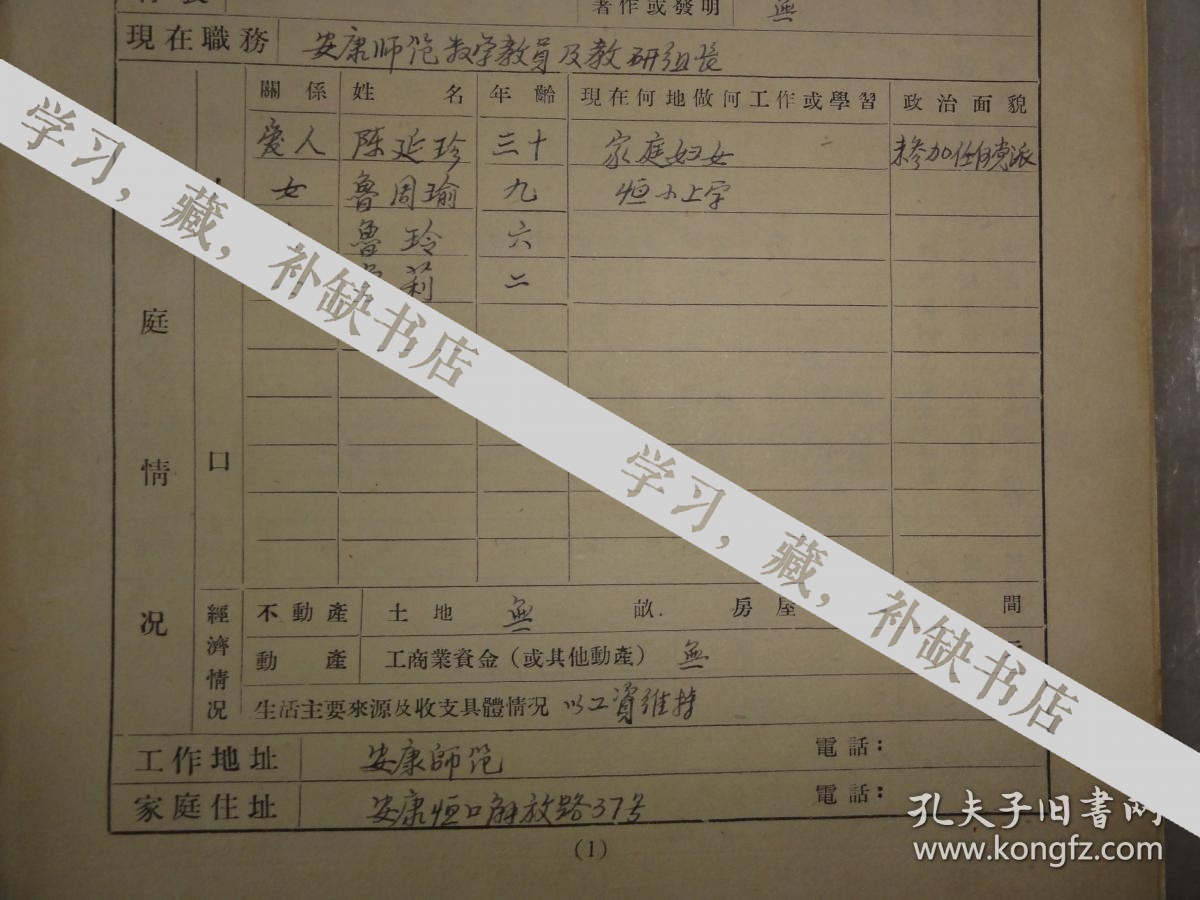 著作或發明 無
現在職務 安康师范数学教員及教研组長
關係 姓名 年齡 現在何地做何工作或學習 政治面貌
爱人 陈延珍 三十 家庭妇女 未参加任何党派
女 魯周瑜 九 恒小上学
魯玲 六
莉 二
庭
情
况
口
經濟情况
不動產 土地 無 畝 房屋 間
動產 工商業資金（或其他動產） 無
生活主要來源及收支具體情况 以工資維持
工作地址 安康師范 電話：
家庭住址 安康恒口解放路37号 電話：
(1)
学习，藏，补缺书店
学习，藏，补缺书店
孔夫子旧书网
www.kongfz.com